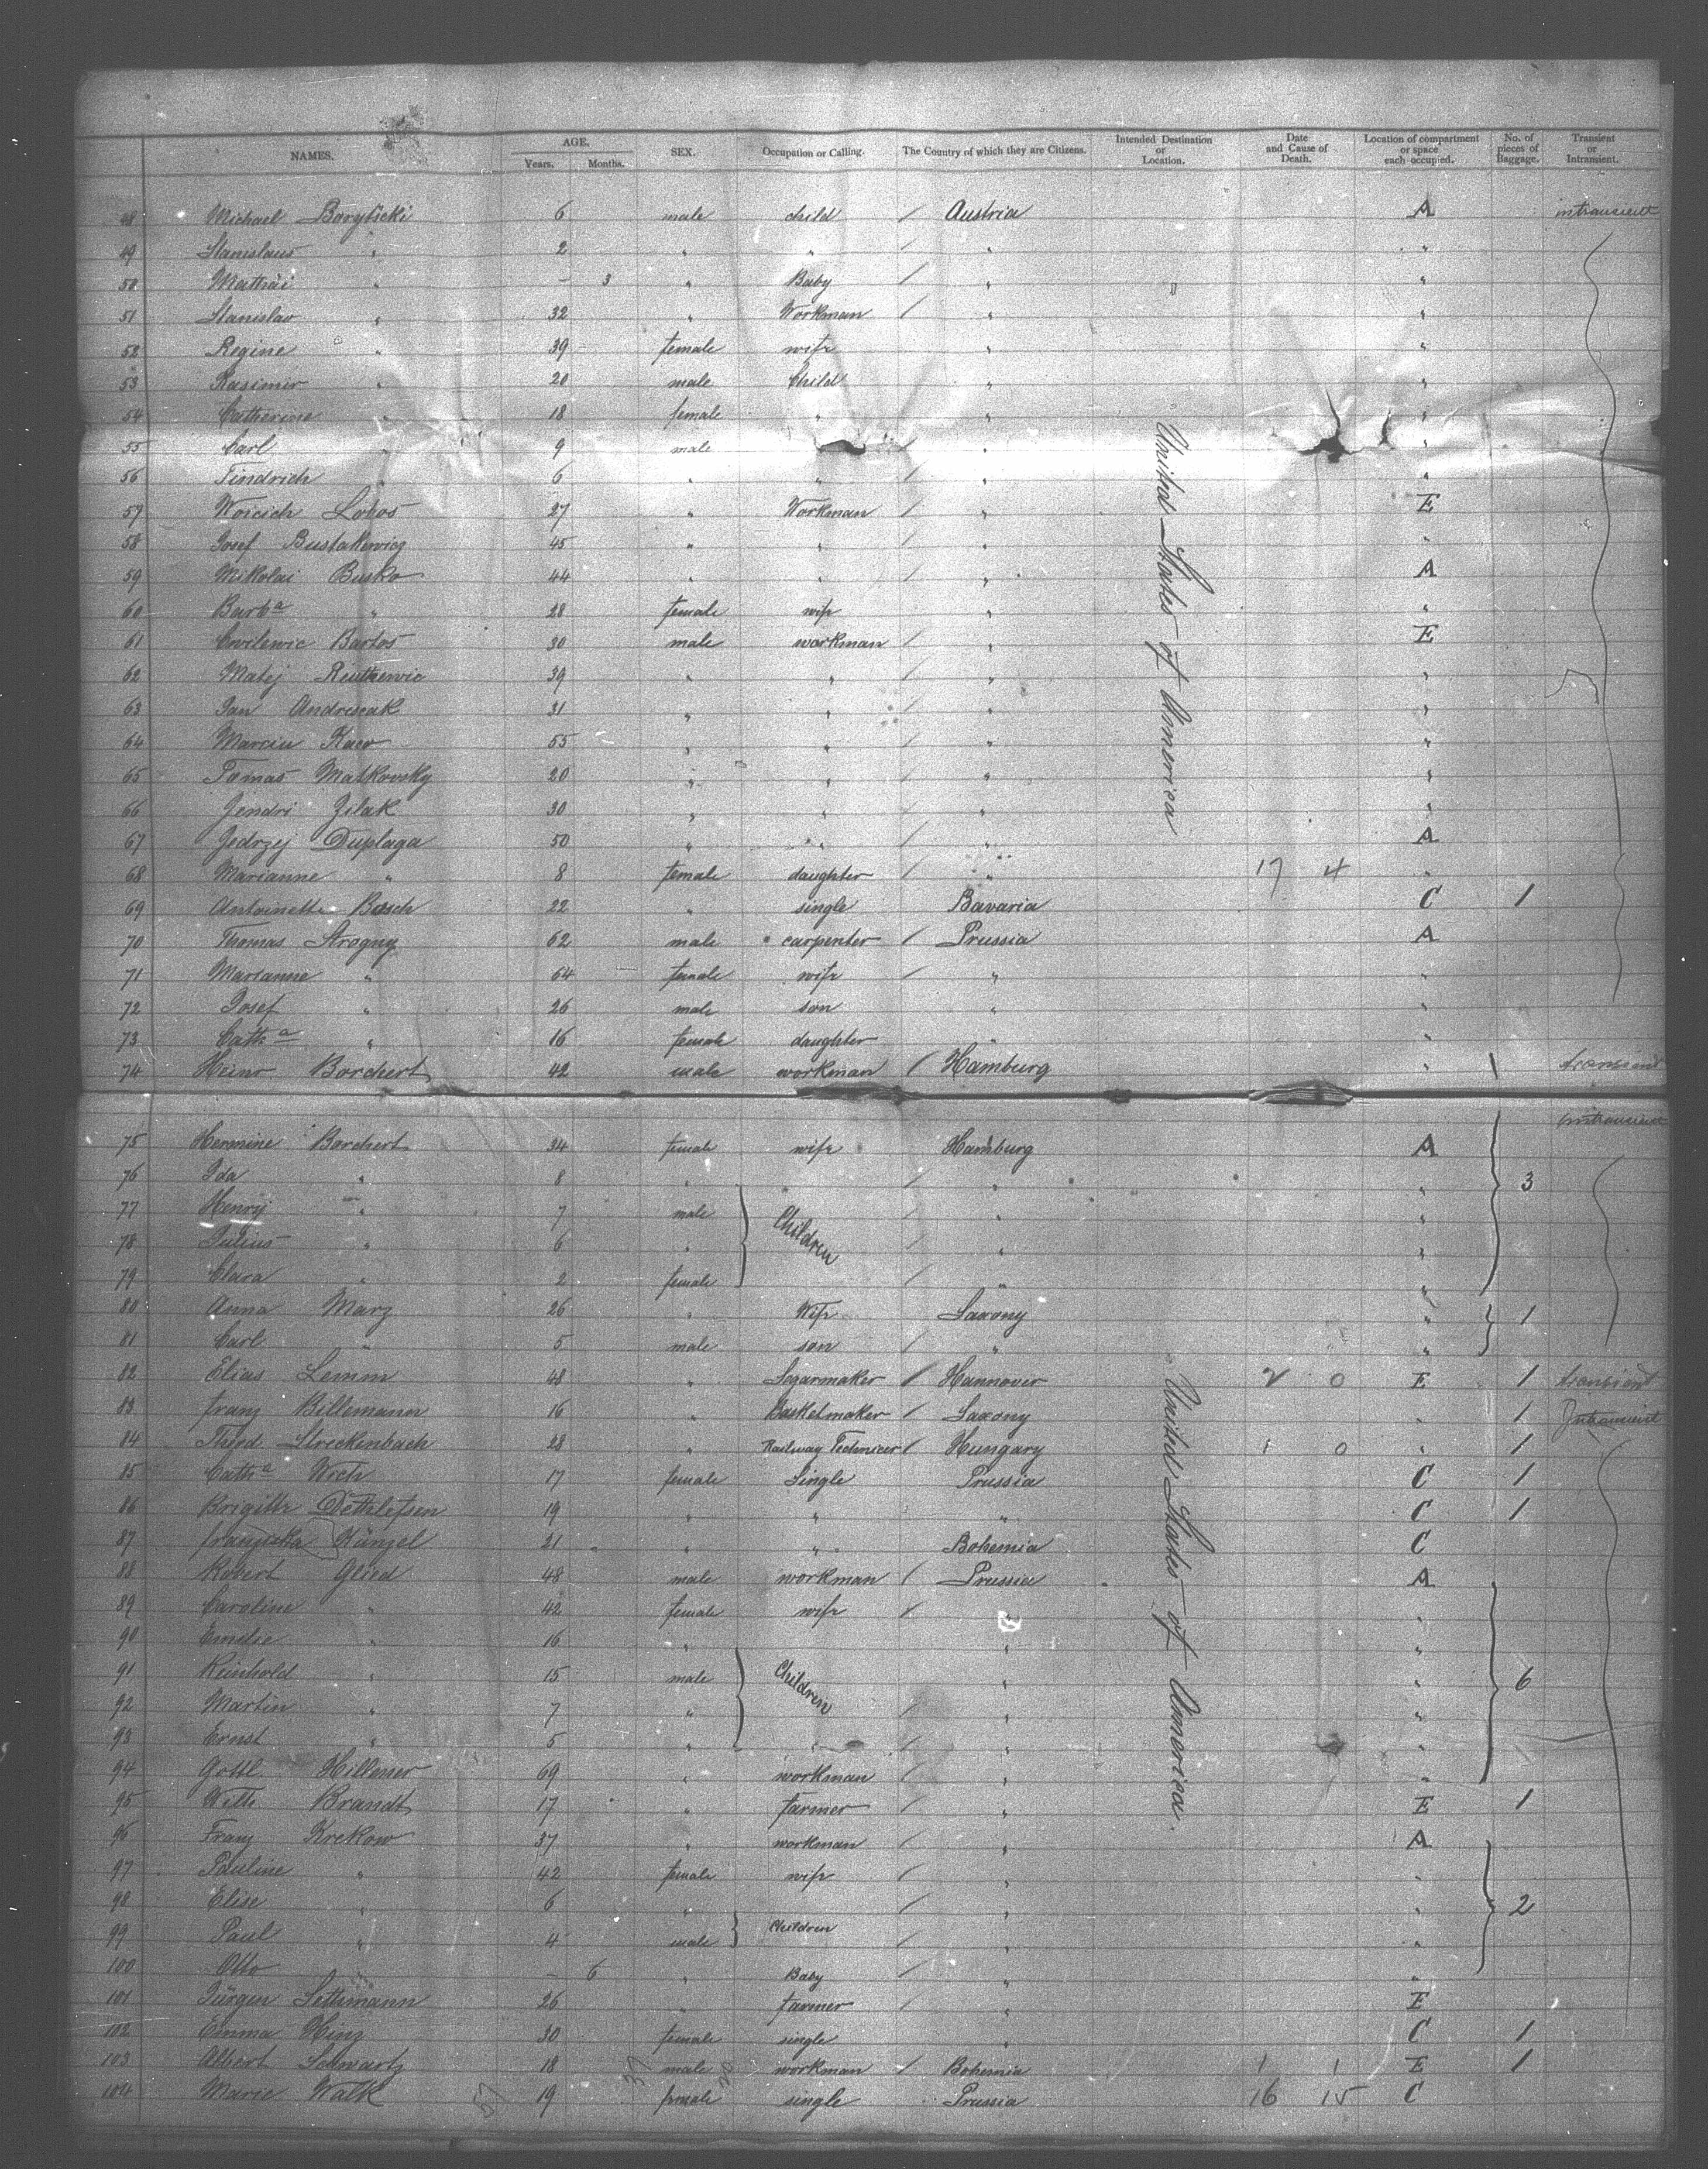 NAMES. AGE. Years. Months. SEX. Occupation or Calling. The Country of which they are Citizens. Intended Destination or Location. Date and Cause of Death. Location of compartment or space each occupied. No. of pieces of Baggage. Transient or Intransient.
48 Michael Borybicki 6 male child / Austria A intransient
49 Stanislaus " 2 " " / " "
50 Mathäi " - 3 " Baby / " "
51 Stanislav " 32 " Workman / " "
52 Regine " 39 female wife " "
53 Kasimir " 20 male Child " "
54 Catherine " 18 female " " "
55 Carl " 9 male / " "
56 Tindrich " 6 " " / " "
57 Woicich Lobos 27 " Workman / " E
58 Josef Bustakewicz 45 " " / " "
59 Mikolai Busko 44 " " / " A
60 Barba " 28 female wife " "
61 Bartos 30 male workman / " E
62 Matej 39 " " / " "
63 Jan 31 " " / " "
64 Marcin 55 " " / " "
65 Tomas Matkovsky 20 " " / " "
66 Jendri Zilak 30 " " / " "
67 Jedrzej Duplaga 50 " " / " A
68 Marianne " 8 female daughter / " 17 4 "
69 Antoinette Bosch 22 " single Bavaria C 1
70 Thomas Strogny 62 male carpenter / Prussia A
71 Marianne " 64 female wife / " "
72 Josef " 26 male son " "
73 Catha " 16 female daughter " "
74 Heinr Borchert 42 male workman / Hamburg " transient
United States of America
75 Hermine Borchert 34 female wife Hamburg A intransient
76 Ida " 8 " / " " 3
77 Henry " 7 male Children / " "
78 Julius " 6 " / " "
79 Clara " 2 female / " "
80 Anna Marz 26 " Wife Saxony " 1
81 Carl " 5 male son / " "
82 Elias Lemm 48 " Segarmaker / Hannover 2 0 E 1 transient
83 Franz Billemann 16 " Basketmaker / Saxony " 1 Intransient
84 Streckenbach 28 " Railway Technicer / Hungary 1 0 " 1
85 Catha 17 female Single Prussia C 1
86 Brigitte Dethlefsen 19 " " " C 1
87 Franziska Künzel 21 " " Bohemia C
88 Robert Glied 48 male workman / Prussia A
89 Caroline " 42 female wife / " "
90 Emilie " 16 " " "
91 Reinhold " 15 male Children " " 6
92 Martin " 7 " / " "
93 Ernst " 5 " / " "
94 Gottl. Hillener 69 " workman / " "
95 Wilh Brandt 17 " farmer / " E 1
96 Franz Krekow 37 " workman / " A
97 Pauline " 42 female wife / " "
98 Elise " 6 " / " " 2
99 Paul " 4 male Children / " "
100 Otto " - 6 " Baby / " "
101 Jürgen Lethmann 26 " farmer / " E
102 Emma Hinz 30 female single " C 1
103 Albert Schwartz 18 male workman / Bohemia 1 1 E 1
104 Marie Walk 19 female single Prussia 16 15 C
United States of America.